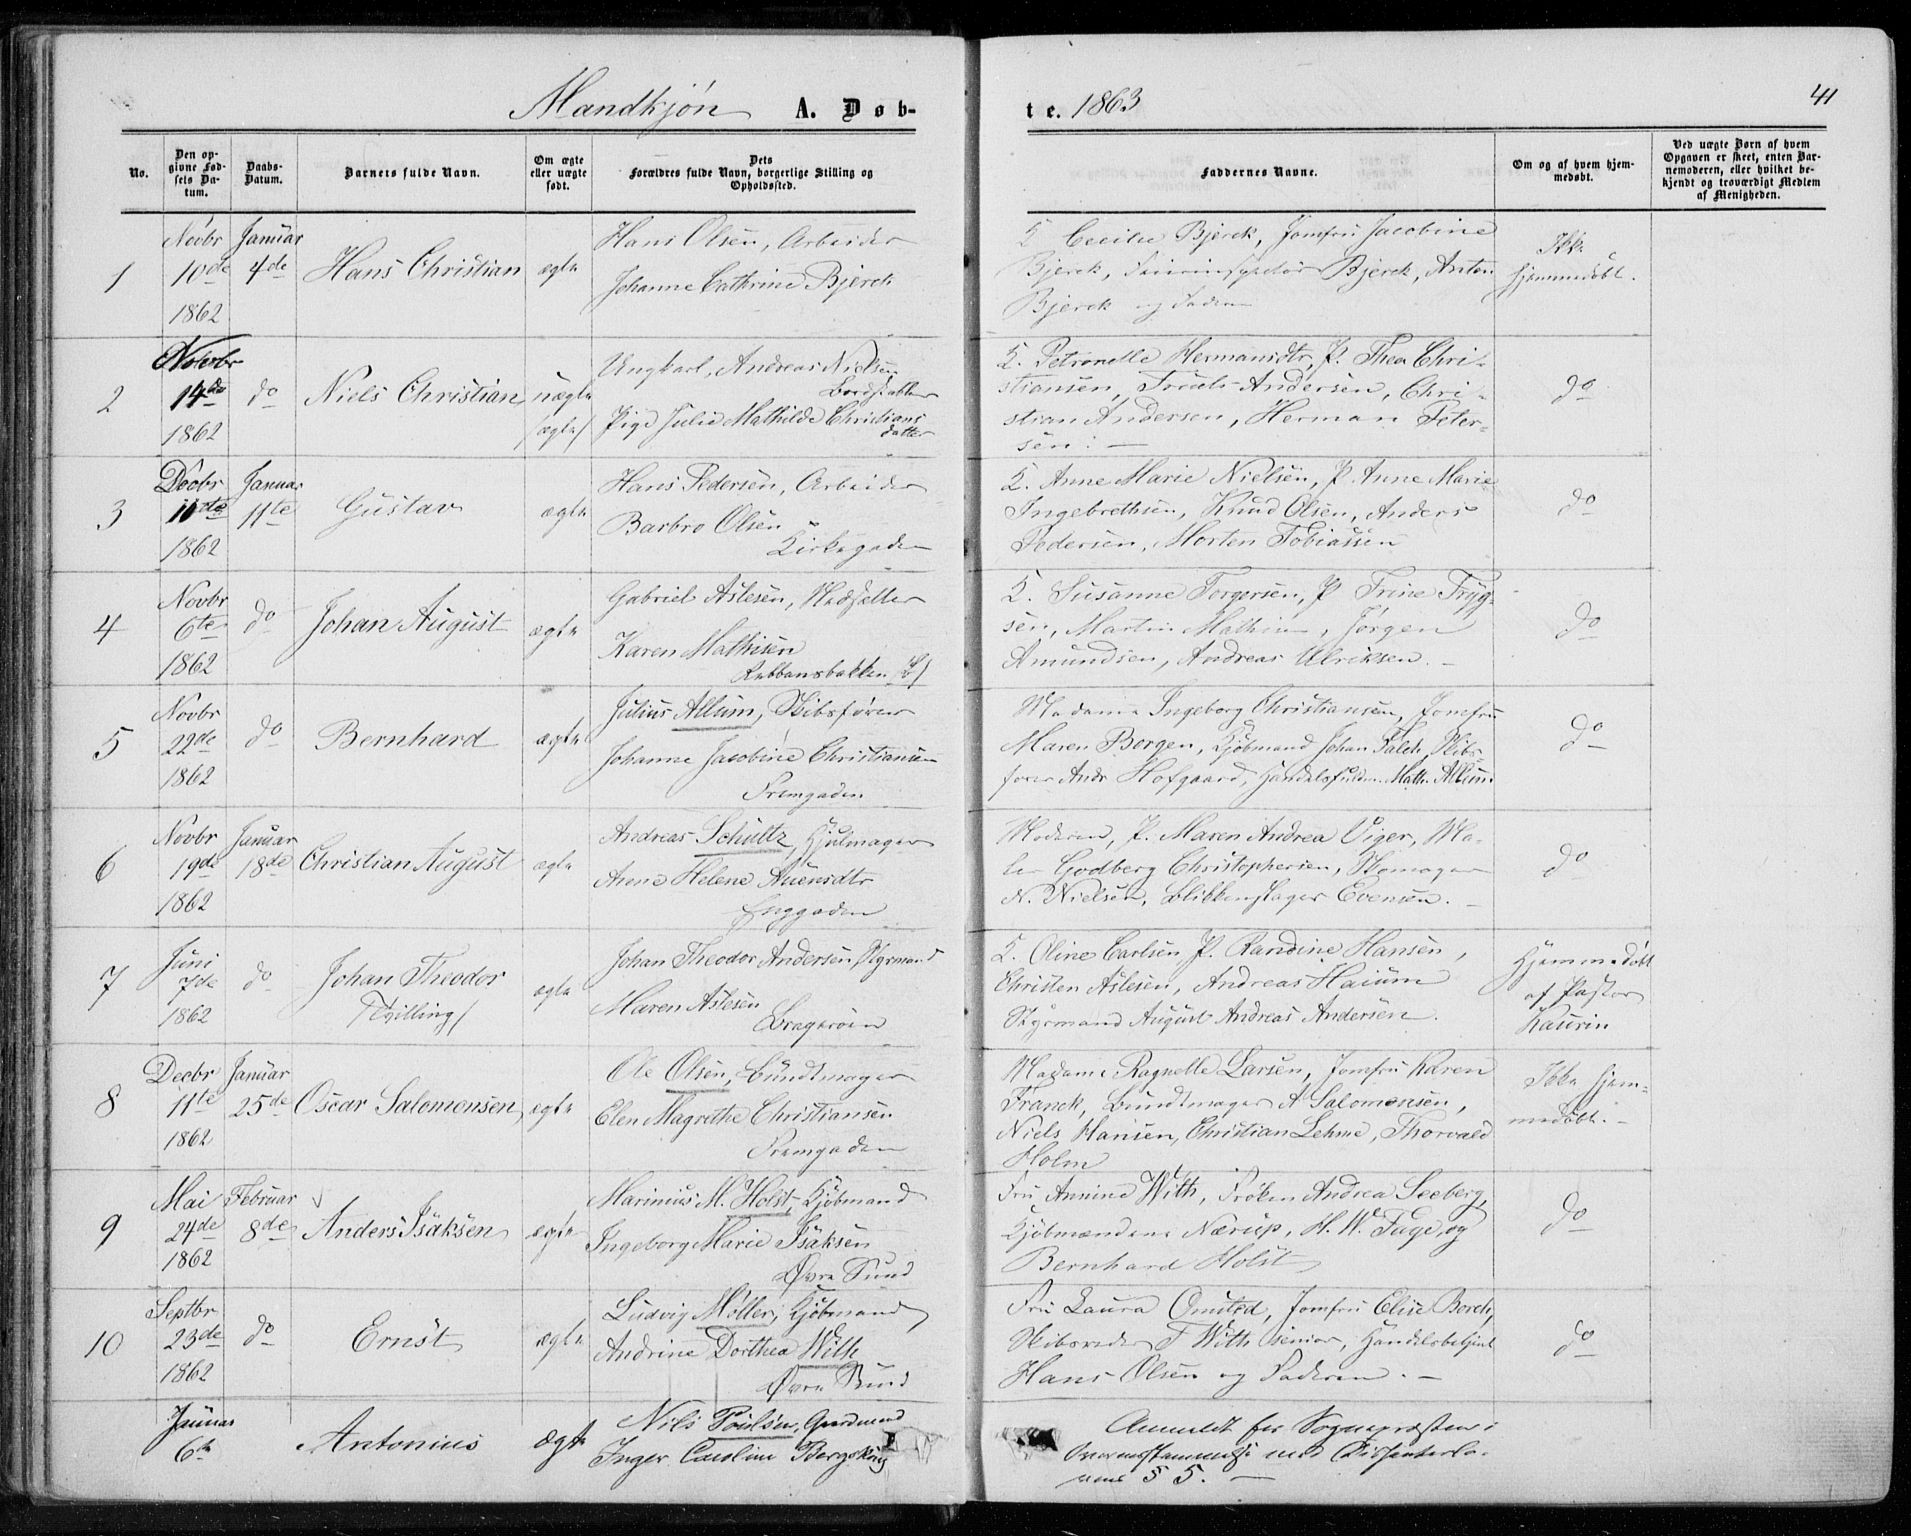 Mandkjøn A. Døb-
te. 1863
41
No.
Den op-
givne Fød-
sels Da-
tum.
Daabs-
Datum.
Barnets fulde Navn.
Om ægte
eller uægte
født.
Dets
Forældres fulde Navn, borgerlige Stilling og
Opholdssted.
Faddernes Navne.
Om og af hvem hjem-
medøbt.
Ved uægte Børn af hvem
Opgaven er skeet, enten Bar-
nemoderen, eller hvilket be-
kjendt og troværdigt Medlem
af Menigheden.
1
Novbr
10de
1862
Januar
4de
Hans Christian
ægte
Hans Olsen, Arbeider
Johanne Cathrine Bjerck
Cecilie Bjerck, Jomfru Jacobine
Bjerck, Bjerck, Anton
Bjerck og Faderen
Ikke
hjemmedøbt.
2
Novbr
14de
1862
do
Niels Christian
uægte
/ægte/
Ungkarl, Andreas Nielsen
Bordstabler
Pige Julie Mathilde Christians
datter
K. Petronelle Hermansdtr, P. Thea Chri-
stiansen, Truels Andersen, Chri-
stian Andersen, Herman Peter-
sen. —
do
3
Decbr
10de
1862
Januar
11te
Gustav
ægte
Hans Pedersen, Arbeider
Barbro Olsen
Kirkegaden
K. Anne Marie Nielsen, P. Anne Marie
Ingebrethsen, Knud Olsen, Anders
Pedersen, Morten Tobiassen
do
4
Novbr
6te
1862
do
Johan August
ægte
Gabriel Aslesen, Vedsetter
Karen Mathisen
Rebbansbakken
K. Susanne Torgersen, P. Trine Tryg-
sen, Martin Mathisen, Jørgen
Amundsen, Andreas Ulriksen. —
do
5
Novbr
22de
1862
do
Bernhard
ægte
Julius Allum, Skibsfører
Johanne Jacobine Christiansen
Fremgaden
Madame Ingeborg Christiansen, Jomfru
Maren Borgen, Kjøbmand Johan Falch, Skibs-
fører Andr Hofgaard, Handelsfuldm. Math. Allum.
do
6
Novbr
19de
1862
Januar
18de
Christian August
ægte
Andreas Schultz, Hjulmager
Anne Helene Auensdtr
Enggaden
Moderen, P. Maren Andrea Viger, Ma-
ler Godberg Christophersen, Skomager
N. Nielsen, Blikkenslager Evensen. —
do
7
Juni
7de
1862
do
Johan Theodor
/Tvilling/
ægte
Johan Theodor Andersen, Styrmand
Maren Aslesen
Bragerøen
K. Oline Carlsen, P. Randine Hansen,
Christen Aslesen, Andreas Haium
Styrmand August Andreas Andersen.
Hjemmedøbt
af Pastor
Kaurin
8
Decbr
11te
1862
Januar
25de
Oscar Salomonsen,
ægte
Ole Olsen, Bundtmager
Elen Magrethe Christiansen
Fremgaden
Madame Ragnelle Larsen, Jomfru Karen
Franck, Bundtmager A Salomonsen,
Niels Hansen, Christian Lehme, Thorvald
Holm
Ikke hjem-
medøbt. —
9
Mai
24de
1862
Februar
8de
Anders Isaksen
ægte
Marinius M. Holst, Kjøbmand
Ingeborg Marie Isaksen
Øvre Sund
Fru Annine With, Frøken Andrea Seeberg,
Kjøbmændene Nærup, H. W. Fuge, og
Bernhard Holst
do
10
Septbr
23de
1862
do
Ernst
ægte
Ludvig Møller, Kjøbmand
Andrine Dorthea With
Øvre Sund
Fru Laura Omsted, Jomfru Elise Borch,
Skibsreder F With senior, Handelsbetjent
Hans Olsen og Faderen. —
do
Januar
6te
Antonius
ægte
Nils Poulsen, Gaardmand
Inger Caroline Bergskaug
Anmeldt for Sognepræsten i
Overensstemmelse med Dissenterlo-
vens § 5. —